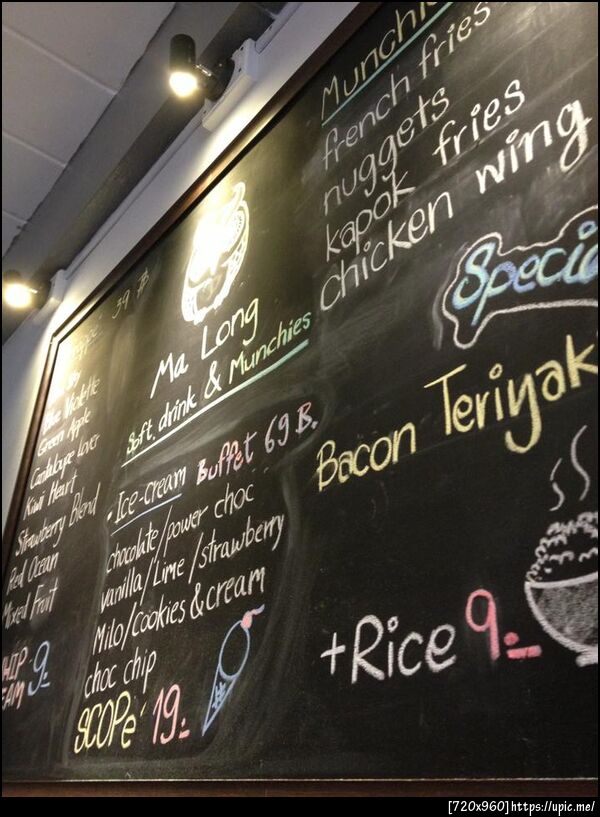 39 ฿
Green Apple
Cantaloupe Lover
Kiwi Heart
Strawberry Blend
Red Ocean
Mixed Fruit
9.-
Ma Long
Soft drink & Munchies
- Ice-cream Buffet 69 B.
chocolate/power choc
vanilla/Lime/strawberry
Milo/cookies & cream
choc chip
SCOPe' 19.-
Munchi
french fries
nuggets
kapok fries
chicken wing
Specia
Bacon Teriyak
+Rice 9.-
[720x960] https://upic.me/